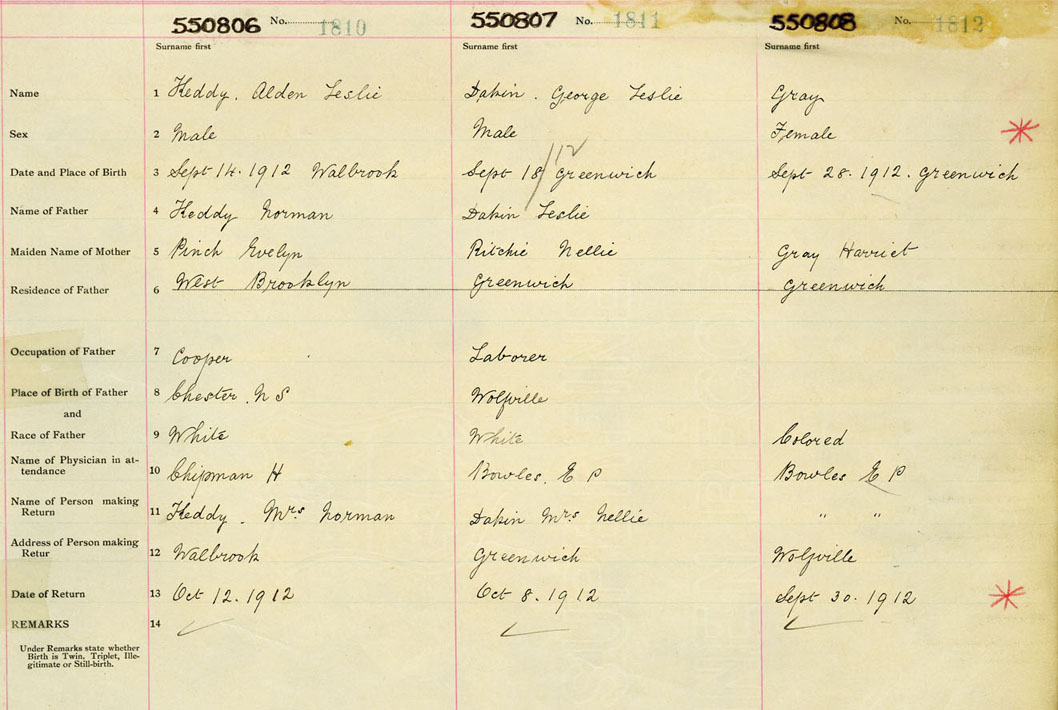 550806 No. 1810 550807 No. 1811 550808 No. 1812
Surname first Surname first Surname first
Name 1 Keddy. Alden Leslie Dakin. George Leslie Gray
Sex 2 Male Male Female
Date and Place of Birth 3 Sept 14. 1912 Walbrook Sept 18/12 Greenwich Sept 28. 1912. Greenwich
Name of Father 4 Keddy Norman Dakin Leslie
Maiden Name of Mother 5 Pinch Evelyn Ritchie Nellie Gray Harriet
Residence of Father 6 West Brooklyn Greenwich Greenwich
Occupation of Father 7 Cooper Laborer
Place of Birth of Father 8 Chester. N S Wolfville
and
Race of Father 9 White White Colored
Name of Physician in at-
tendance 10 Chipman H Bowles. E P Bowles E P
Name of Person making
Return 11 Keddy. Mrs Norman Dakin Mrs Nellie " "
Address of Person making
Retur 12 Walbrook Greenwich Wolfville
Date of Return 13 Oct 12. 1912 Oct 8. 1912 Sept 30. 1912
REMARKS 14
Under Remarks state whether
Birth is Twin, Triplet, Ille-
gitimate or Still-birth.